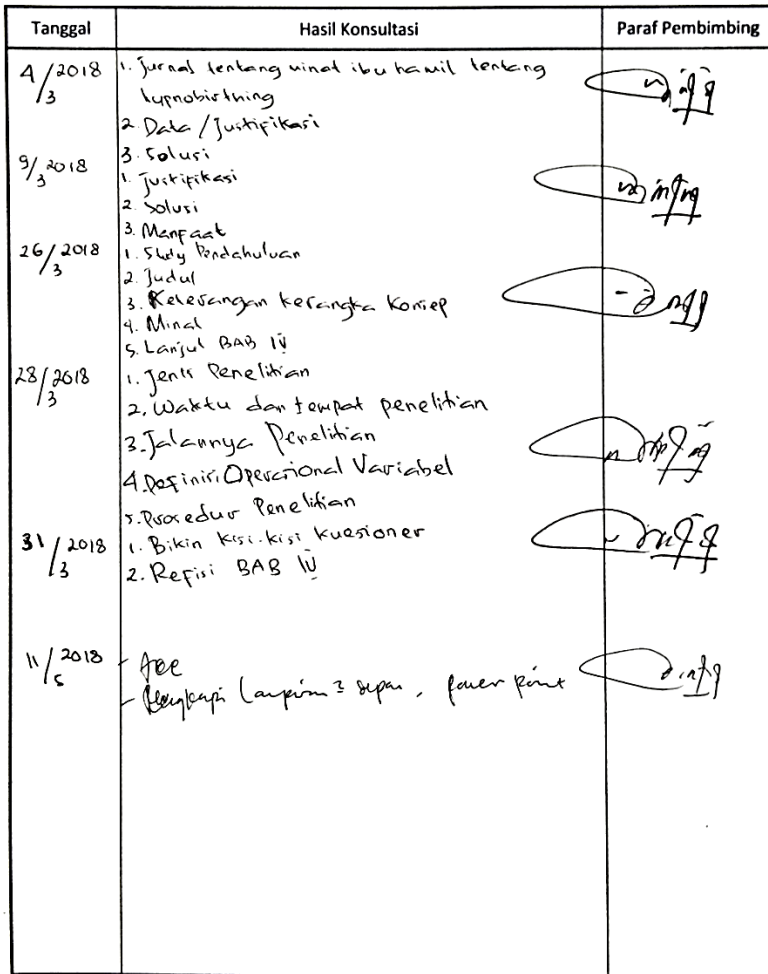 Tanggal Hasil Konsultasi Paraf Pembimbing
4/3 2018 1. Jurnal tentang minat ibu hamil tentang
hypnobirthing
2. Data / Justifikasi
3. Solusi
9/3 2018 1. Justifikasi
2. Solusi
3. Manfaat
26/3 2018 1. Study Pendahuluan
2. Judul
3. Keterangan kerangka Konsep
4. Minat
5. Lanjut BAB IV
28/3 2018 1. Jenis Penelitian
2. Waktu dan tempat penelitian
3. Jalannya Penelitian
4. Definisi Operasional Variabel
5. Prosedur Penelitian
31/3 2018 1. Bikin kisi-kisi kuesioner
2. Refisi BAB IV
11/5 2018 - Acc
- Lengkapi power point